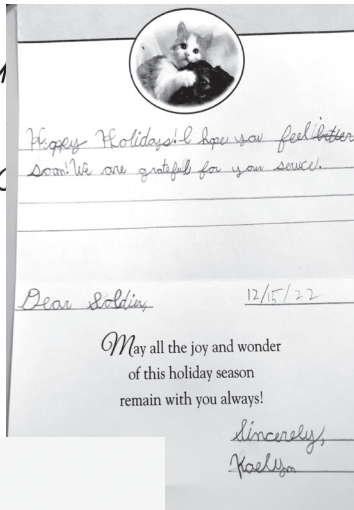 Happy Holidays! I hope you feel better
soon! We are grateful for your service.
Dear Soldier,
12/15/22
May all the joy and wonder
of this holiday season
remain with you always!
Sincerely,
Kaelyn